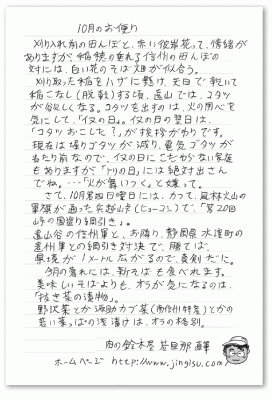 10月のお便り
刈り入れ前の田んぼと、赤い彼岸花って、情緒が
ありますが、稲穂の垂れる信州の田んぼの
対には、白い花のそば畑が似合う。
刈り取った稲をハザに懸け、天日で乾いて
稲こなし(脱穀)する頃、遠山では、コタツ
が恋しくなる。コタツを出すのは、火の用心を
気にして、「亥の日」。亥の日の翌日は、
「コタツおこした?」が挨拶がわりです。
現在は堀りゴタツが減り、電気ゴタツが
当たり前なので、亥の日にこだわらない家庭
もありますが、「トリの日」には絶対出さん
でね。…「火が舞いつく」と嫌って。
さて、10月第四日曜日には、かって、風林火山の
軍旗が通った兵越峠(ヒョー越)で、「第20回
峠の国盗り綱引き」。
遠山谷の信州軍と、お隣り、静岡県水窪町の
遠州軍との綱引き対決で、勝てば、
県境が1メートル広がるので、真剣だに。
今月の暮れには、新そばも食べれます。
美味しいそばよりも、オラが気になるのは、
「抜き菜の漬物」。
野沢菜とか源助カブ菜(南信州特産)とかの
若い葉っぱの浅漬けは、オラの格別。
肉の鈴木屋 若旦那
ホームページ http://www.jingisu.com/